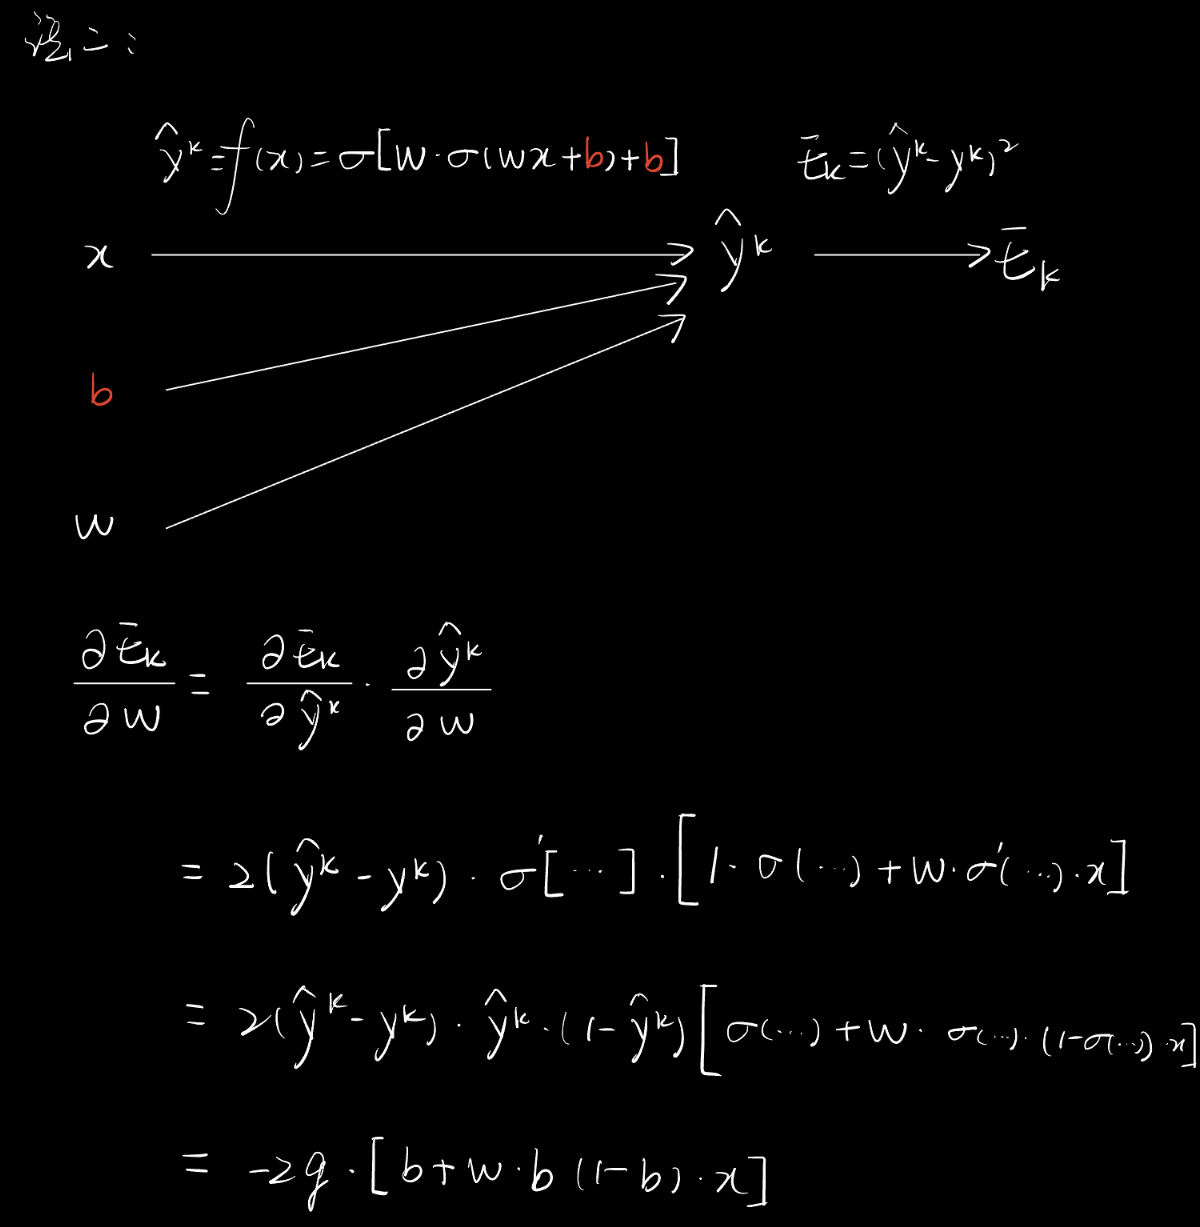 设二：
ŷᵏ=f(x)=σ[w·σ(wx+b)+b] Eₖ=(ŷᵏ-yᵏ)²
x ŷᵏ Eₖ
b
w
∂Eₖ/∂w = ∂Eₖ/∂ŷᵏ · ∂ŷᵏ/∂w
= 2(ŷᵏ-yᵏ)·σ'[…]·[1·σ(…)+w·σ'(…)·x]
= 2(ŷᵏ-yᵏ)·ŷᵏ·(1-ŷᵏ)[σ(…)+w·σ(…)·(1-σ(…))·x]
= -2g·[b+w·b(1-b)·x]